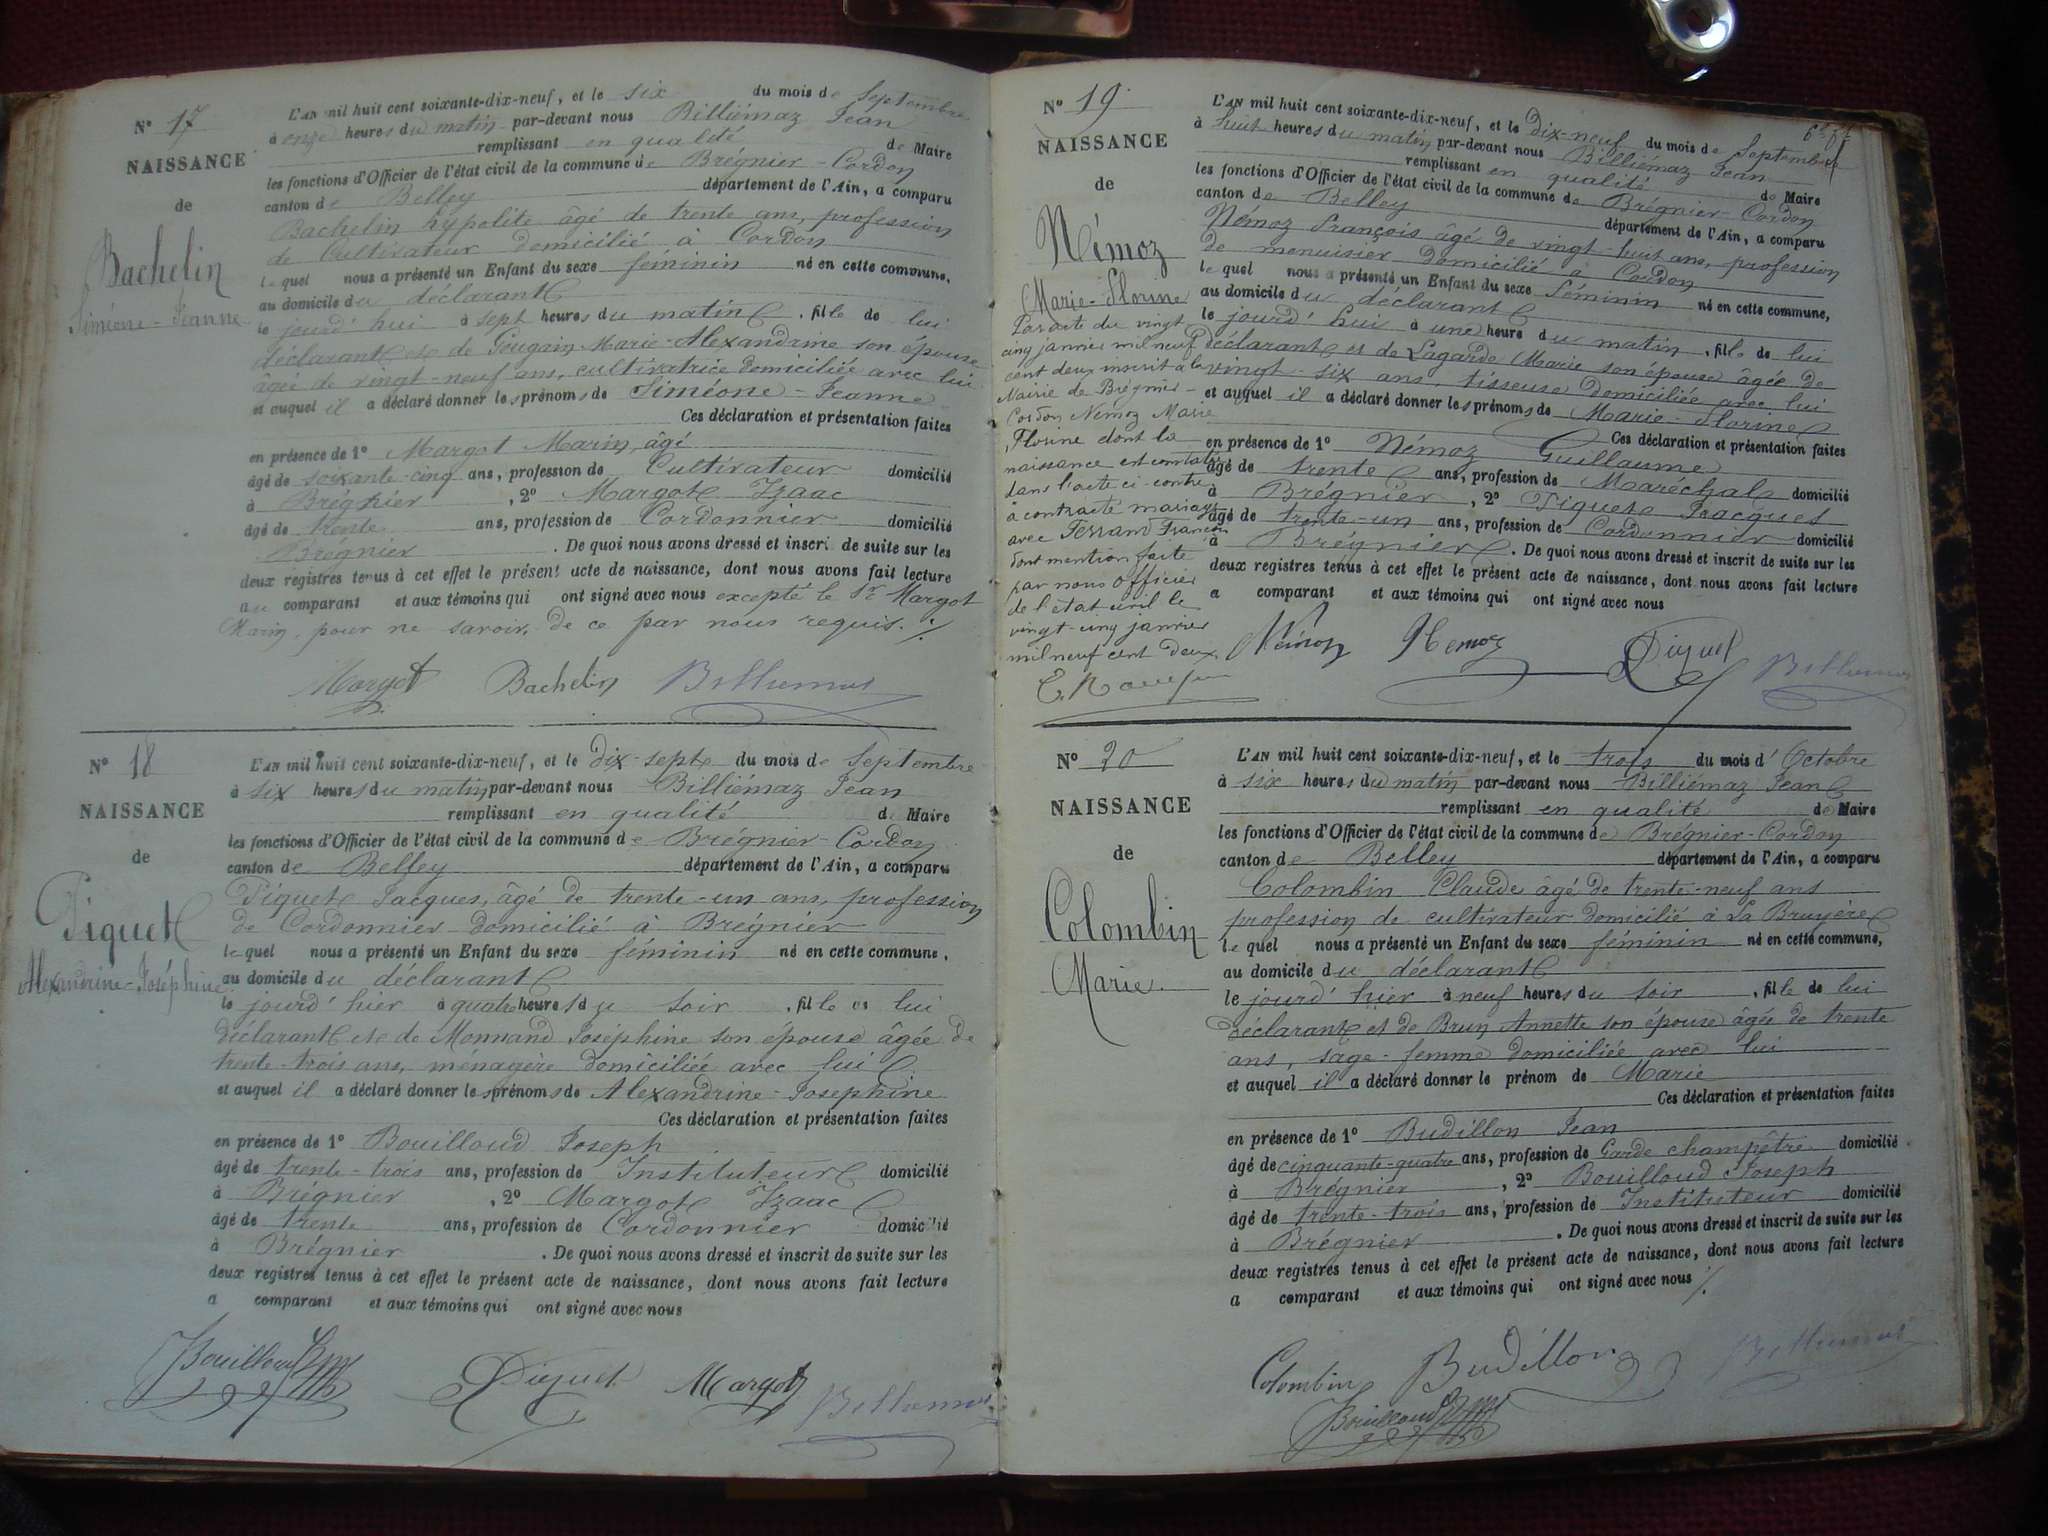 N° 17
NAISSANCE
de
Bachelin
Siméone-Jeanne
L'AN mil huit cent soixante-dix-neuf, et le six du mois de Septembre
à onze heures du matin par-devant nous Billiémaz Jean
remplissant en qualité de Maire
les fonctions d'Officier de l'état civil de la commune de Brégnier-Cordon
canton de Belley département de l'Ain, a comparu
Bachelin hypolite âgé de trente ans, profession
de Cultivateur domicilié à Cordon
lequel nous a présenté un Enfant du sexe féminin né en cette commune,
au domicile du déclarant
le jourd'hui à sept heures du matin, fille de lui
déclarant et de Gougain Marie-Alexandrine son épouse
âgée de vingt-neuf ans, cultivatrice domiciliée avec lui
et auquel il a déclaré donner les prénoms de Siméone-Jeanne
Ces déclaration et présentation faites
en présence de 1° Margot Marin, âgé
âgé de soixante-cinq ans, profession de Cultivateur domicilié
à Brégnier, 2° Margot Izaac
âgé de trente ans, profession de Cordonnier domicilié
Brégnier. De quoi nous avons dressé et inscrit de suite sur les
deux registres tenus à cet effet le présent acte de naissance, dont nous avons fait lecture
au comparant et aux témoins qui ont signé avec nous excepté le Sr Margot
Marin, pour ne savoir, de ce par nous requis. /.
Margot Bachelin Billiemaz
N° 18
NAISSANCE
de
Piquet
Alexandrine-Joséphine
L'AN mil huit cent soixante-dix-neuf, et le dix-sept du mois de Septembre
à six heures du matin par-devant nous Billiémaz Jean
remplissant en qualité de Maire
les fonctions d'Officier de l'état civil de la commune de Brégnier-Cordon
canton de Belley département de l'Ain, a comparu
Piquet Jacques, âgé de trente-un ans, profession
de Cordonnier domicilié à Brégnier
lequel nous a présenté un Enfant du sexe féminin né en cette commune,
au domicile du déclarant
le jourd'hier à quatre heures du soir, fille de lui
déclarant et de Monnand Joséphine son épouse âgée de
trente-trois ans, ménagère domiciliée avec lui
et auquel il a déclaré donner les prénoms de Alexandrine-Josephine
Ces déclaration et présentation faites
en présence de 1° Bouilloud Joseph
âgé de trente-trois ans, profession de Instituteur domicilié
à Brégnier, 2° Margot Izaac
âgé de trente ans, profession de Cordonnier domicilié
à Brégnier. De quoi nous avons dressé et inscrit de suite sur les
deux registres tenus à cet effet le présent acte de naissance, dont nous avons fait lecture
a comparant et aux témoins qui ont signé avec nous
Bouilloud Piquet Margot Billiemaz
N° 19
NAISSANCE
de
Némoz
Marie-Florine
Par acte du vingt
cinq janvier mil neuf
cent deux inscrit à la
Mairie de Brégnier-
Cordon, Némoz Marie
Florine dont la
naissance est constatée
dans l'acte ci-contre
à contracté mariage
avec Ferrand François
dont mention faite
par nous Officier
de l'état civil le
vingt-cinq janvier
mil neuf cent deux
L'AN mil huit cent soixante-dix-neuf, et le dix-neuf du mois de Septembre
à huit heures du matin par-devant nous Billiémaz Jean
remplissant en qualité de Maire
les fonctions d'Officier de l'état civil de la commune de Brégnier-Cordon
canton de Belley département de l'Ain, a comparu
Némoz François âgé de vingt-huit ans, profession
de menuisier domicilié à Cordon
lequel nous a présenté un Enfant du sexe Féminin né en cette commune,
au domicile du déclarant
le jourd'hui à une heure du matin, fille de lui
déclarant et de Lagarde Marie son épouse âgée de
vingt-six ans, tisseuse domiciliée avec lui
et auquel il a déclaré donner les prénoms de Marie-Florine
Ces déclaration et présentation faites
en présence de 1° Némoz Guillaume
âgé de trente ans, profession de Maréchal domicilié
à Brégnier, 2° Piquet Jacques
âgé de trente-un ans, profession de Cordonnier domicilié
à Brégnier. De quoi nous avons dressé et inscrit de suite sur les
deux registres tenus à cet effet le présent acte de naissance, dont nous avons fait lecture
a comparant et aux témoins qui ont signé avec nous
Némoz Nemoz Piquet Billiemaz
N° 20
NAISSANCE
de
Colombin
Marie
L'AN mil huit cent soixante-dix-neuf, et le trois du mois d'Octobre
à six heures du matin par-devant nous Billiémaz Jean
remplissant en qualité de Maire
les fonctions d'Officier de l'état civil de la commune de Brégnier-Cordon
canton de Belley département de l'Ain, a comparu
Colombin Claude âgé de trente-neuf ans
profession de cultivateur domicilié à La Bruyère
lequel nous a présenté un Enfant du sexe féminin né en cette commune,
au domicile du déclarant
le jourd'hier à neuf heures du soir, fille de lui
déclarant et de Brun Annette son épouse âgée de trente
ans, sage-femme domiciliée avec lui
et auquel il a déclaré donner le prénom de Marie
Ces déclaration et présentation faites
en présence de 1° Budillon Jean
âgé de cinquante-quatre ans, profession de Garde champêtre domicilié
à Brégnier, 2° Bouilloud Joseph
âgé de trente-trois ans, profession de Instituteur domicilié
à Brégnier. De quoi nous avons dressé et inscrit de suite sur les
deux registres tenus à cet effet le présent acte de naissance, dont nous avons fait lecture
a comparant et aux témoins qui ont signé avec nous /.
Colombin Budillon Billiemaz
Bouilloud